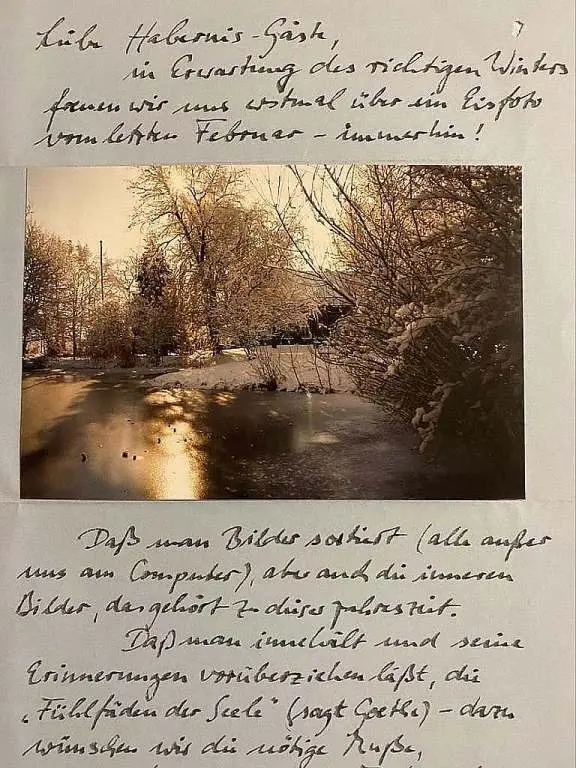 Liebe Habernis-Gäste,
in Erwartung des richtigen Winters
freuen wir uns erstmal über ein Eisfoto
vom letzten Februar - immerhin!
Daß man Bilder sortiert (alle außer
uns am Computer), aber auch die inneren
Bilder, das gehört zu dieser Jahreszeit.
Daß man innehält und seine
Erinnerungen vorüberziehen läßt, die
„Fühlfäden der Seele" (sagt Goethe) - dazu
wünschen wir die nötige Muße,